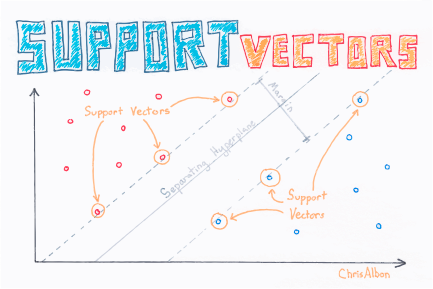 SUPPORT VECTORS
Support Vectors
Margin
Separating Hyperplane
Support
Vectors
ChrisAlbon